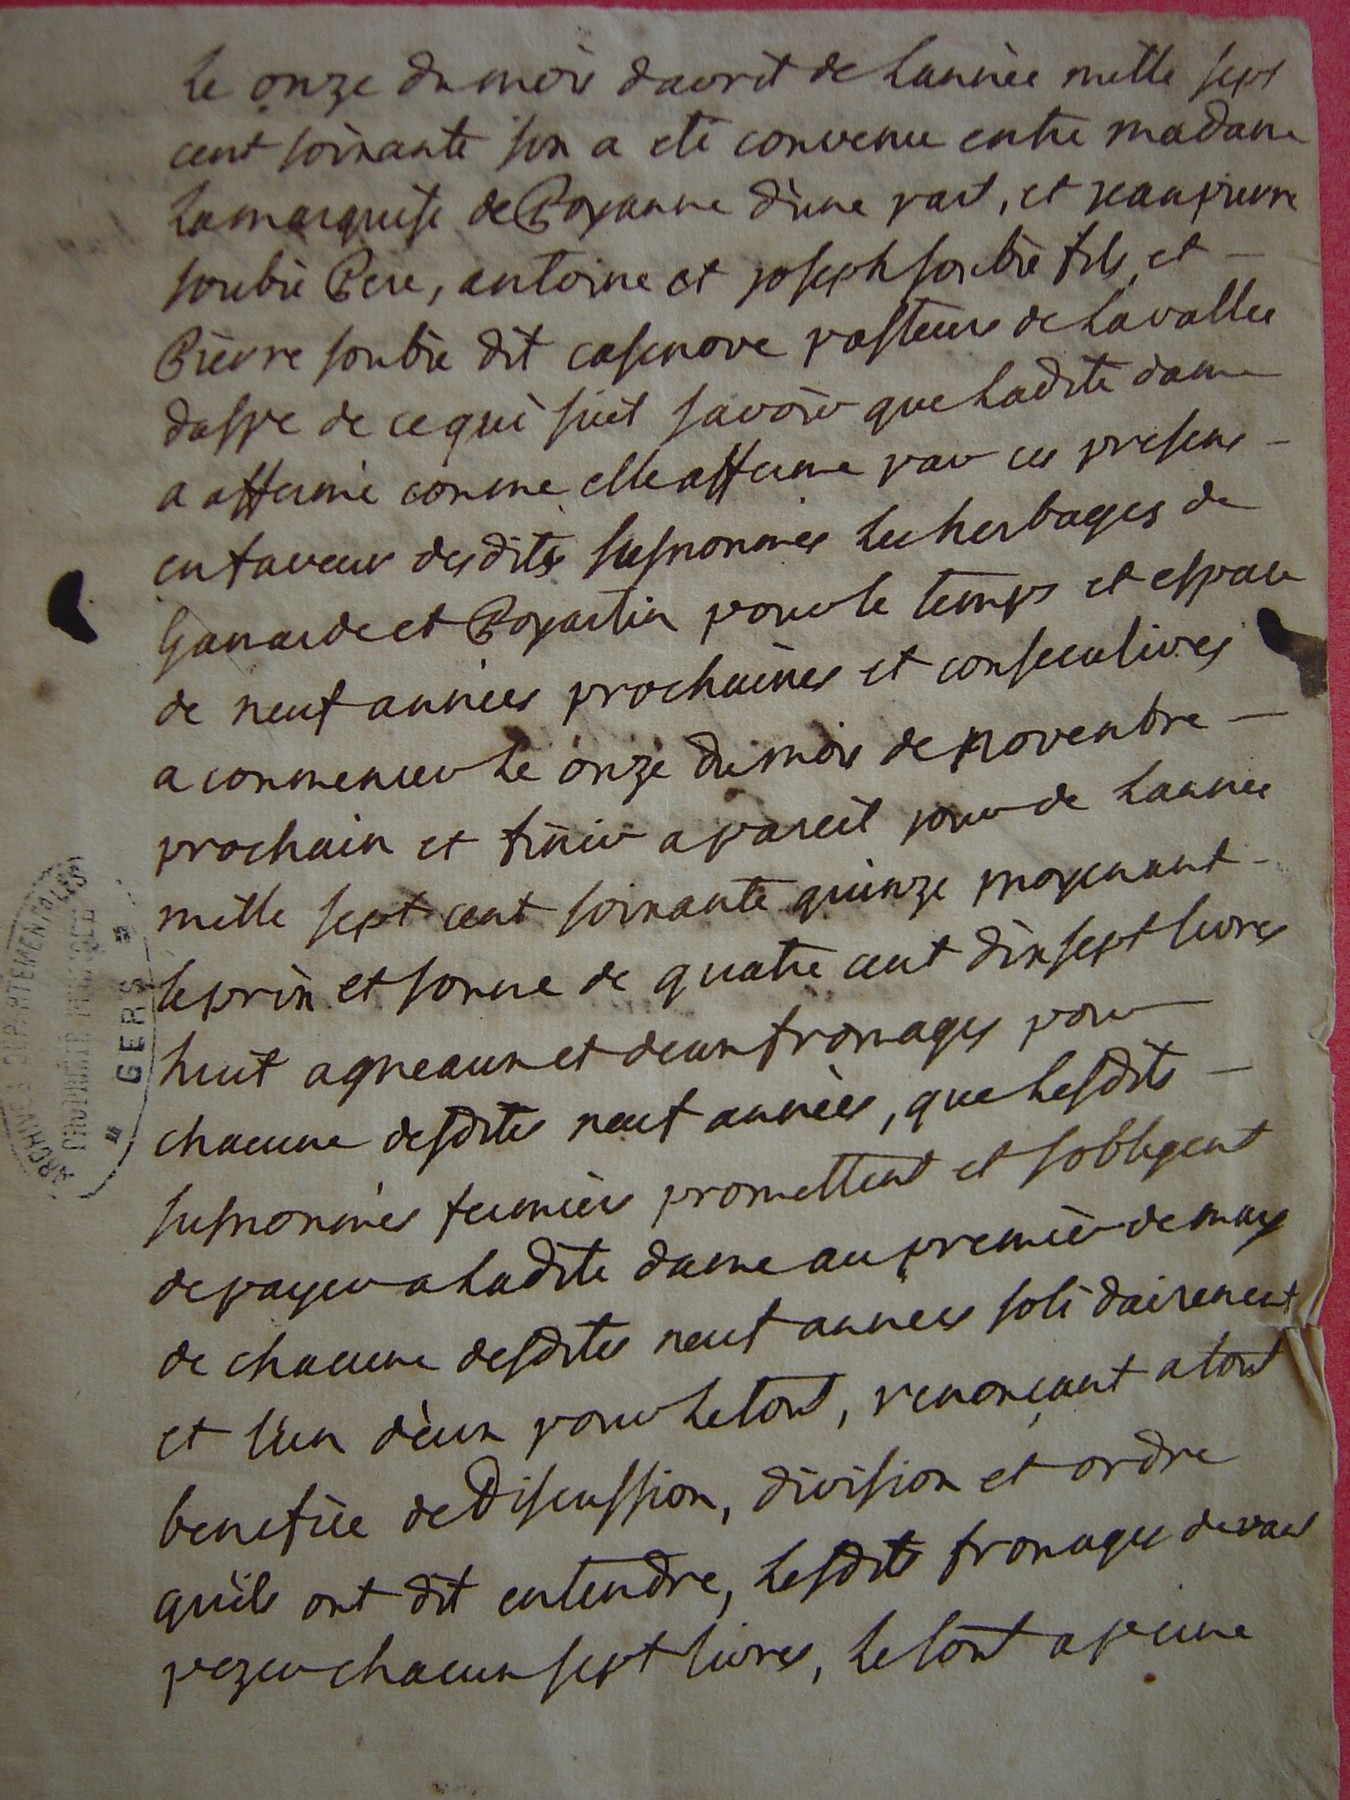 Le onze du mois davril de Lannèe mille sept
cent soixante six a eté convenu entre madame
La marquise de Poyanne d'une part, et jean pierre
soubie Pere, antoine et joseph soubie fils, et —
Pierre soubie dit casenave pasteurs de La vallee
daspe de ce qui suit savoir que Ladite dame
a affermé comme elle afferme par ces presens —
en faveur desdits susnommés Les herbages de
Gamarde et Poyartin pour le temps et espace
de neuf années prochaines et consecutives
a commencer Le onze du mois de novembre —
prochain et finir a pareil jour de Lannee
mille sept cent soixante quinze moyenant —
le prix et somme de quatre cent dix sept livres
huit agneaux et deux fromages pour
chacune desdites neuf années, que Lesdits —
susnommés fermiers promettent et sobligent
de payer a Ladite dame au premier de may
de chacune desdites neuf annees solidairement
et l'un d'eux pour Le tout, renonçant a tout
benefice de Discussion, division et ordre
qu'ils ont dit entendre, Lesdits fromages devant
pezer chacun sept livres, Le tout a peine
ARCHIVES DEPARTEMENTALES
PROPRIÉTÉ PUBLIQUE
* GERS *